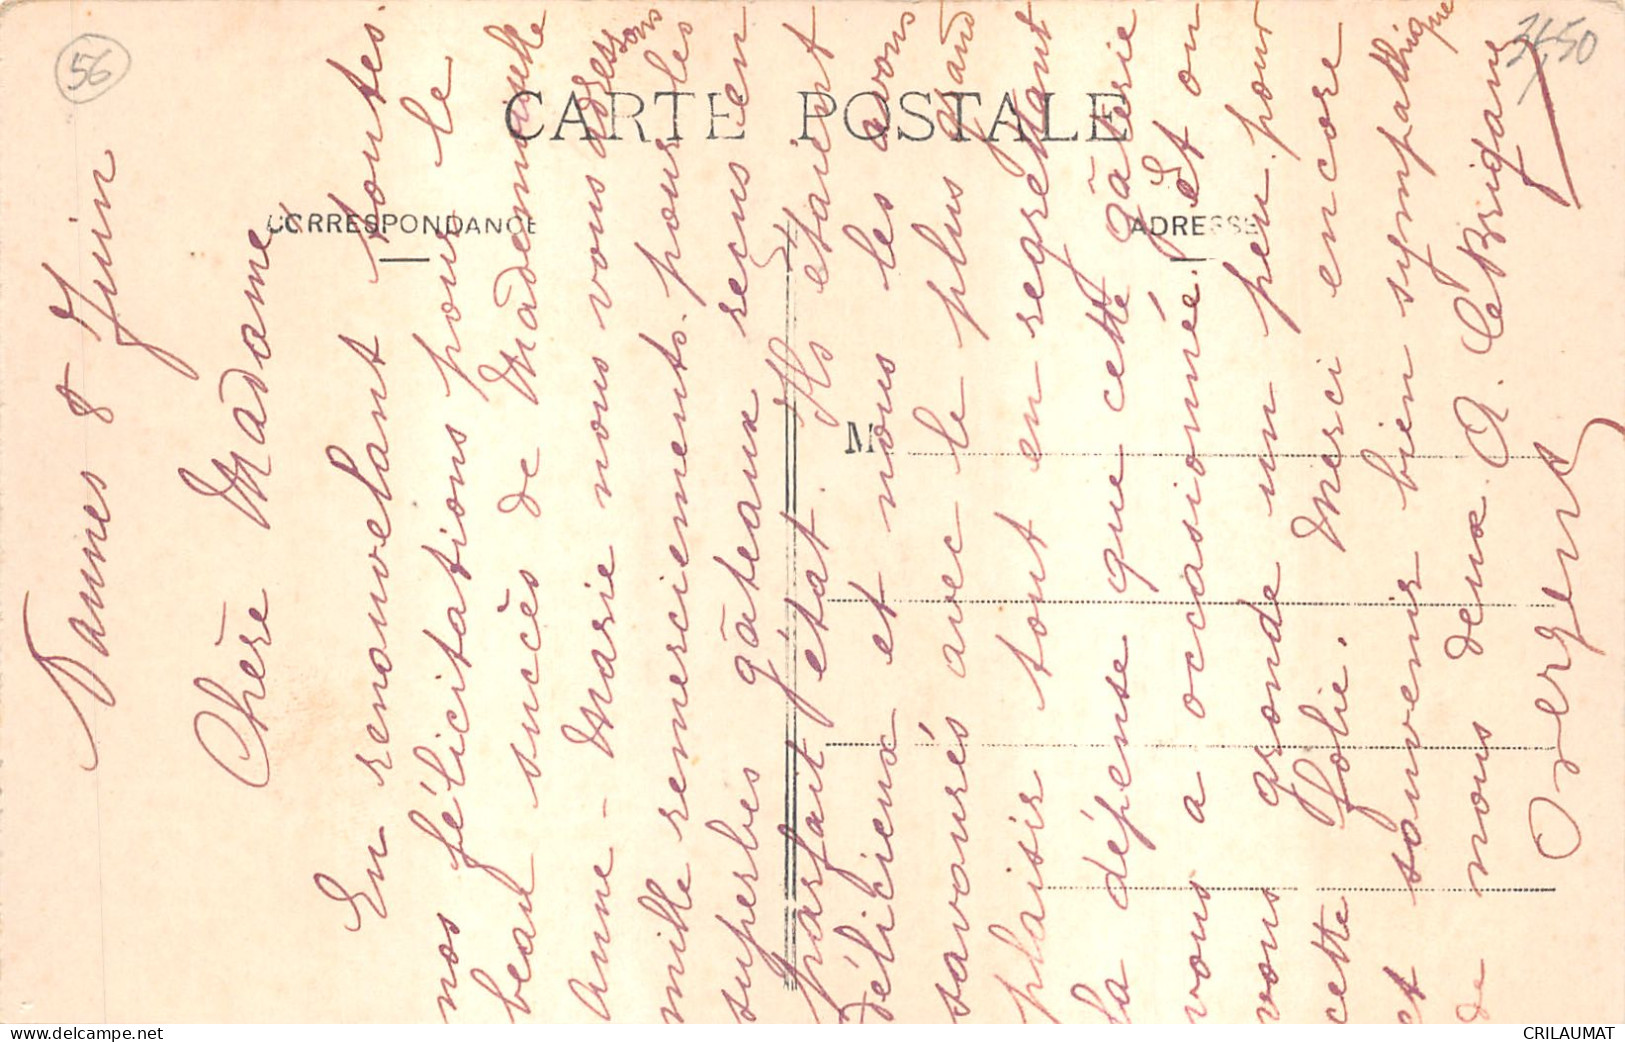 56
35,50
CARTE POSTALE
CORRESPONDANCE
ADRESSE
M
Vannes 8 Juin
Chère Madame
En renouvelant toutes
nos félicitations pour le
beau succès de Mademoiselle
Anne-Marie nous vous adressons
mille remerciements pour les
superbes gâteaux reçus en
parfait état. Ils étaient
délicieux et nous les avons
savourés avec le plus grand
plaisir tout en regrettant
la dépense que cette gâterie
vous a occasionnée. Et on
vous gronde un peu pour
cette folie. Merci encore
et souvenir bien sympathique
de nous deux. A. Le Brigant
www.delcampe.net
CRILAUMAT